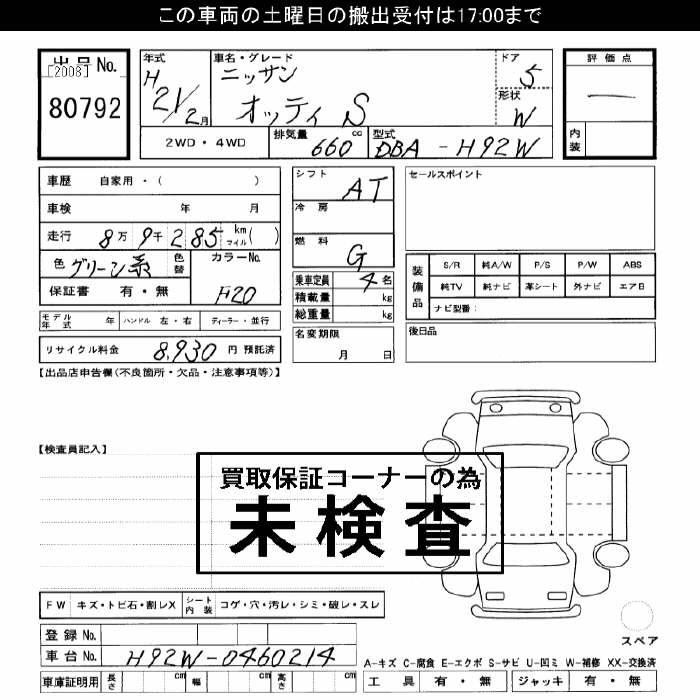 この車両の土曜日の搬出受付は17:00まで
出品No.
[2008]
80792
年式
H21/2月
車名・グレード
ニッサン
オッティ S
ドア
5
形状
W
評価点
―
内装
2WD・4WD
排気量 660 cc
型式 DBA-H92W
車歴 自家用・( )
車検 年 月
走行 8万9千285 km マイル( )
色 グリーン系 色替 カラーNo.
F20
保証書 有・無
モデル年式 年 ハンドル 左・右 ディーラー・並行
リサイクル料金 8,930 円 預託済
シフト AT
冷房
燃料 G
乗車定員 4名
積載量 kg
総重量 kg
名変期限
月 日
セールスポイント
装備品
S/R 純A/W P/S P/W ABS
純TV 純ナビ 革シート 外ナビ エアB
ナビ型番:
後日品
【出品店申告欄(不良箇所・欠品・注意事項等)】
【検査員記入】
買取保証コーナーの為
未検査
FW キズ・トビ石・割レX シート内装 コゲ・穴・汚レ・シミ・破レ・スレ
登録No.
車台No. H92W-0460214
車庫証明用 長さ cm 幅 cm 高さ cm
スペア
A-キズ C-腐食 E-エクボ S-サビ U-凹ミ W-補修 XX-交換済
工具 有・無 ジャッキ 有・無